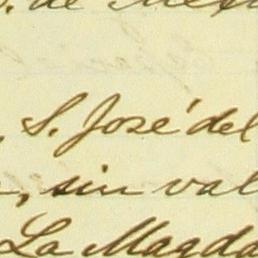 . de Mex
, S. José del
, sin val
La Magda